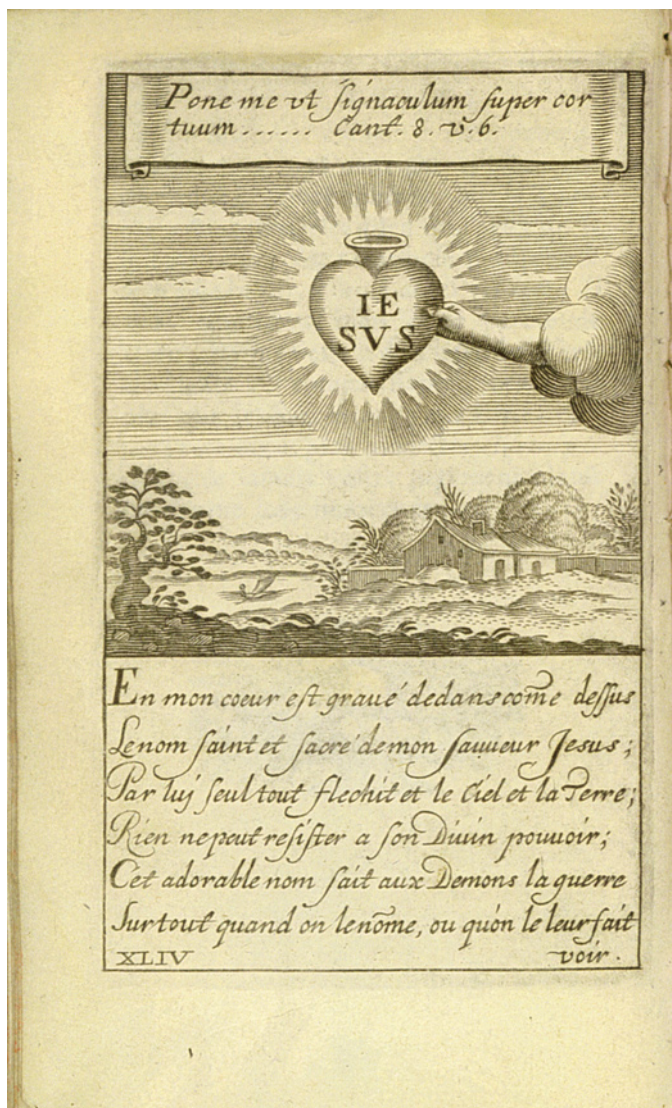 Pone me vt ſignaculum ſuper cor
tuum ...... Cant. 8. v. 6.
IE
SVS
En mon coeur eſt graué dedans com̄e deſſus
Le nom ſaint et ſacré de mon ſauueur Jesus;
Par luj ſeul tout flechit et le Ciel et la Terre;
Rien ne peut reſiſter a ſon Diuin pouuoir;
Cét adorable nom fait aux Demons la guerre
Surtout quand on le nōme, ou qu'on le leur fait
XLIV voir.